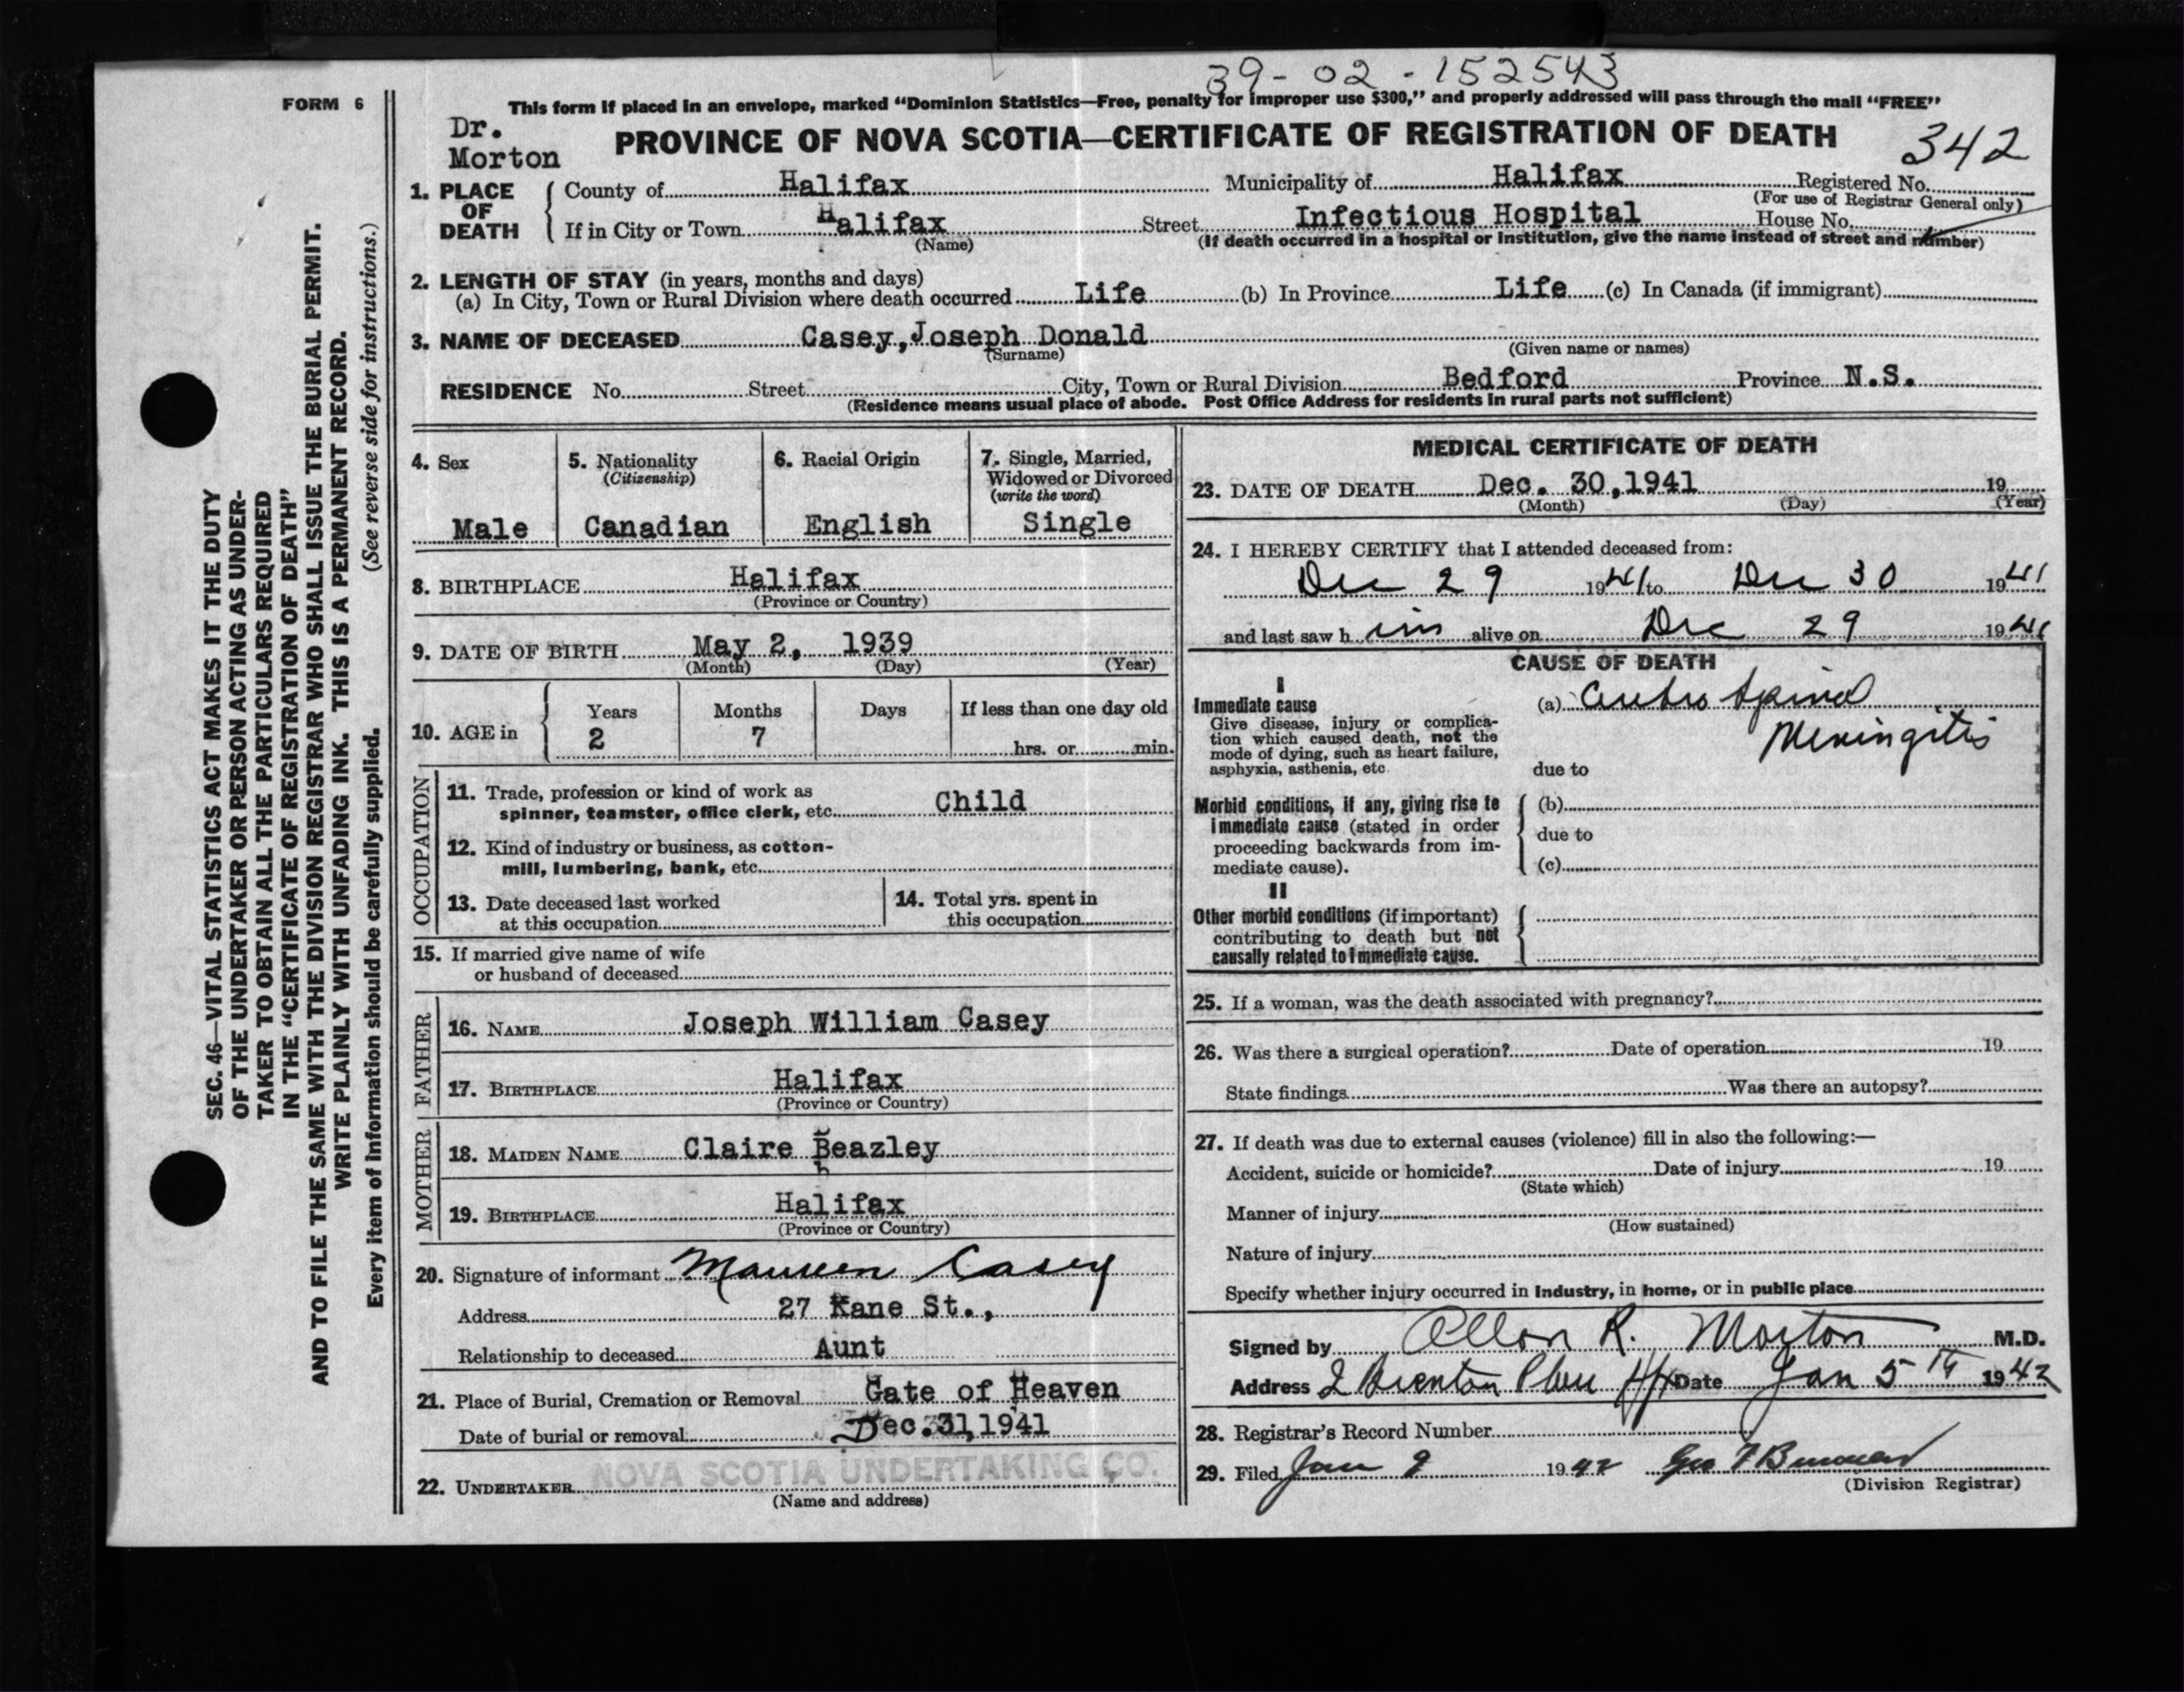 39-02-152543
FORM 6
This form if placed in an envelope, marked "Dominion Statistics—Free, penalty for improper use $300," and properly addressed will pass through the mail "FREE"
Dr.
Morton
PROVINCE OF NOVA SCOTIA—CERTIFICATE OF REGISTRATION OF DEATH
342
1. PLACE OF DEATH
County of Halifax Municipality of Halifax Registered No.
(For use of Registrar General only)
If in City or Town Halifax Street Infectious Hospital House No.
(Name) (If death occurred in a hospital or institution, give the name instead of street and number)
2. LENGTH OF STAY (in years, months and days)
(a) In City, Town or Rural Division where death occurred Life (b) In Province Life (c) In Canada (if immigrant)
3. NAME OF DECEASED Casey, Joseph Donald
(Surname) (Given name or names)
RESIDENCE No. Street City, Town or Rural Division Bedford Province N.S.
(Residence means usual place of abode. Post Office Address for residents in rural parts not sufficient)
4. Sex
Male
5. Nationality
(Citizenship)
Canadian
6. Racial Origin
English
7. Single, Married,
Widowed or Divorced
(write the word)
Single
8. BIRTHPLACE Halifax
(Province or Country)
9. DATE OF BIRTH May 2, 1939
(Month) (Day) (Year)
10. AGE in
Years Months Days If less than one day old
2 7 hrs. or min.
OCCUPATION
11. Trade, profession or kind of work as
spinner, teamster, office clerk, etc. Child
12. Kind of industry or business, as cotton-
mill, lumbering, bank, etc.
13. Date deceased last worked
at this occupation
14. Total yrs. spent in
this occupation
15. If married give name of wife
or husband of deceased
FATHER
16. NAME Joseph William Casey
17. BIRTHPLACE Halifax
(Province or Country)
MOTHER
18. MAIDEN NAME Claire Beazley
19. BIRTHPLACE Halifax
(Province or Country)
20. Signature of informant Maureen Casey
Address 27 Kane St.,
Relationship to deceased Aunt
21. Place of Burial, Cremation or Removal Gate of Heaven
Date of burial or removal Dec. 31, 1941
22. UNDERTAKER NOVA SCOTIA UNDERTAKING CO.
(Name and address)
MEDICAL CERTIFICATE OF DEATH
23. DATE OF DEATH Dec. 30, 1941 19
(Month) (Day) (Year)
24. I HEREBY CERTIFY that I attended deceased from:
Dec 29 1941 to Dec 30 1941
and last saw h im alive on Dec 29 1941
CAUSE OF DEATH
I
Immediate cause
Give disease, injury or complica-
tion which caused death, not the
mode of dying, such as heart failure,
asphyxia, asthenia, etc.
(a) Cerebro Spinal
Meningitis
due to
Morbid conditions, if any, giving rise to
immediate cause (stated in order
proceeding backwards from im-
mediate cause).
(b)
due to
(c)
II
Other morbid conditions (if important)
contributing to death but not
causally related to immediate cause.
25. If a woman, was the death associated with pregnancy?
26. Was there a surgical operation? Date of operation 19
State findings Was there an autopsy?
27. If death was due to external causes (violence) fill in also the following:—
Accident, suicide or homicide? Date of injury 19
(State which)
Manner of injury
(How sustained)
Nature of injury
Specify whether injury occurred in industry, in home, or in public place
Signed by Allan R. Morton M.D.
Address 2 Brenton Place Hfx Date Jan 5th 1942
28. Registrar's Record Number
29. Filed Jan 9 1942 Geo
(Division Registrar)
SEC. 46—VITAL STATISTICS ACT MAKES IT THE DUTY
OF THE UNDERTAKER OR PERSON ACTING AS UNDER-
TAKER TO OBTAIN ALL THE PARTICULARS REQUIRED
IN THE "CERTIFICATE OF REGISTRATION OF DEATH"
AND TO FILE THE SAME WITH THE DIVISION REGISTRAR WHO SHALL ISSUE THE BURIAL PERMIT.
WRITE PLAINLY WITH UNFADING INK. THIS IS A PERMANENT RECORD.
Every item of information should be carefully supplied. (See reverse side for instructions.)